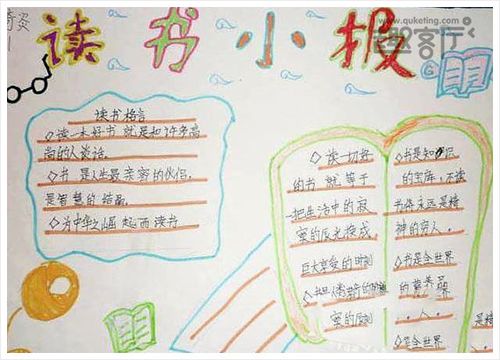 www.quketing.com
趣客厅
读书小报
读书格言
◇读一本好书 就是和许多高
尚的人谈话。
◇书 是人类最亲密的伙侣,
是智慧的结晶。
◇为中华之崛起而读书
◇读一切好
的书 就等于
把生活中的寂
寞的辰光换成
巨大享受的时刻
◇书是知识
的宝库,不读
书你永远是精
神的穷人。
◇书是全世界
的营养品
◇书是全世界